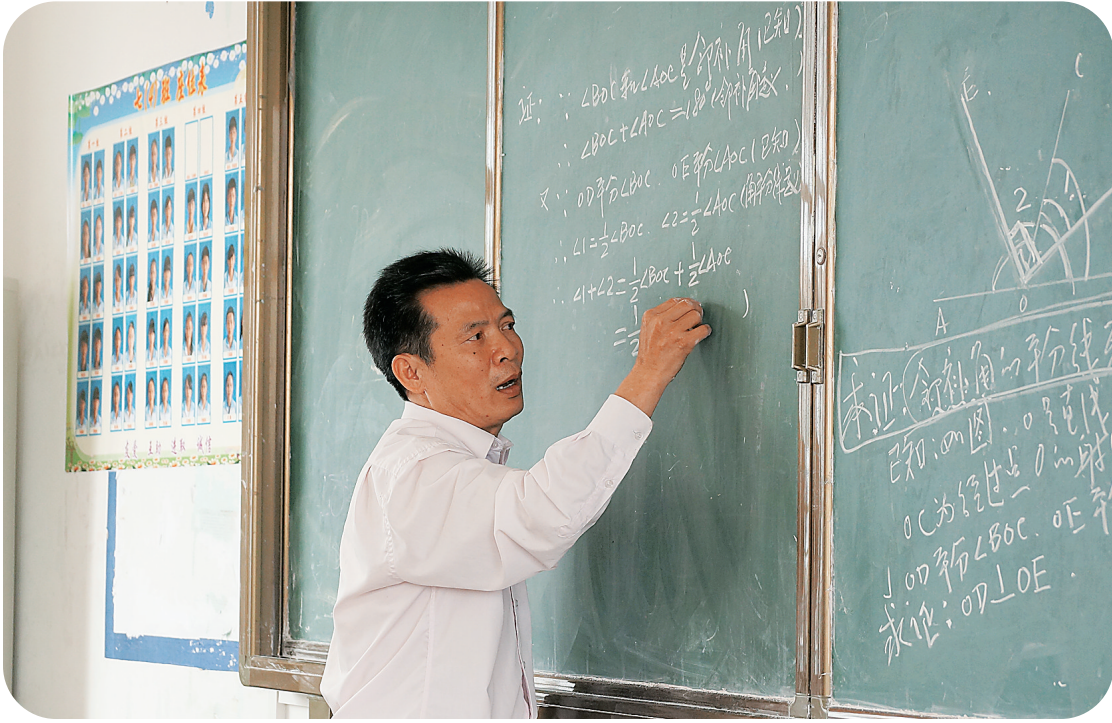 七(1)班 座位表
第一组
第二组
第三组
第四组
第五
文明 互助 进取 诚信
证: ∵ ∠BOC和∠AOC是邻补角(已知)
∴ ∠BOC+∠AOC=180°(邻补角定义)
又∵ OD平分∠BOC. OE平分∠AOC(已知)
∴ ∠1=1/2∠BOC. ∠2=1/2∠AOC(角平分线定义)
∴ ∠1+∠2=1/2∠BOC+1/2∠AOC
=1/2
)
E.
C
2
1
A
O
求证:(邻补角)的平分线
已知:如图. O是直线
OC为经过点O的射
OD平分∠BOC. OE平
求证:OD⊥OE.